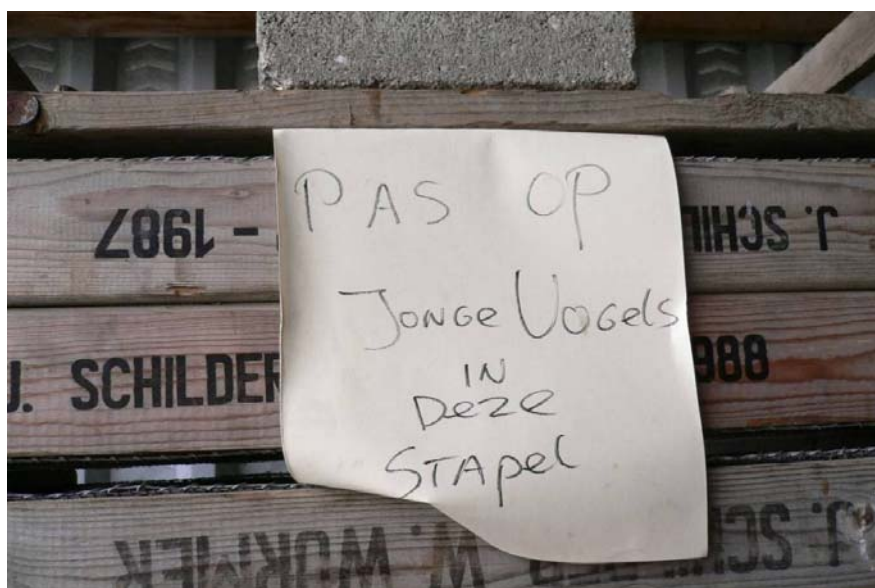 PAS OP
Jonge Vogels
in
Deze
Stapel
- 1987
J. SCHIL
J. SCHILDER
988
J. SCH
W. WORMER